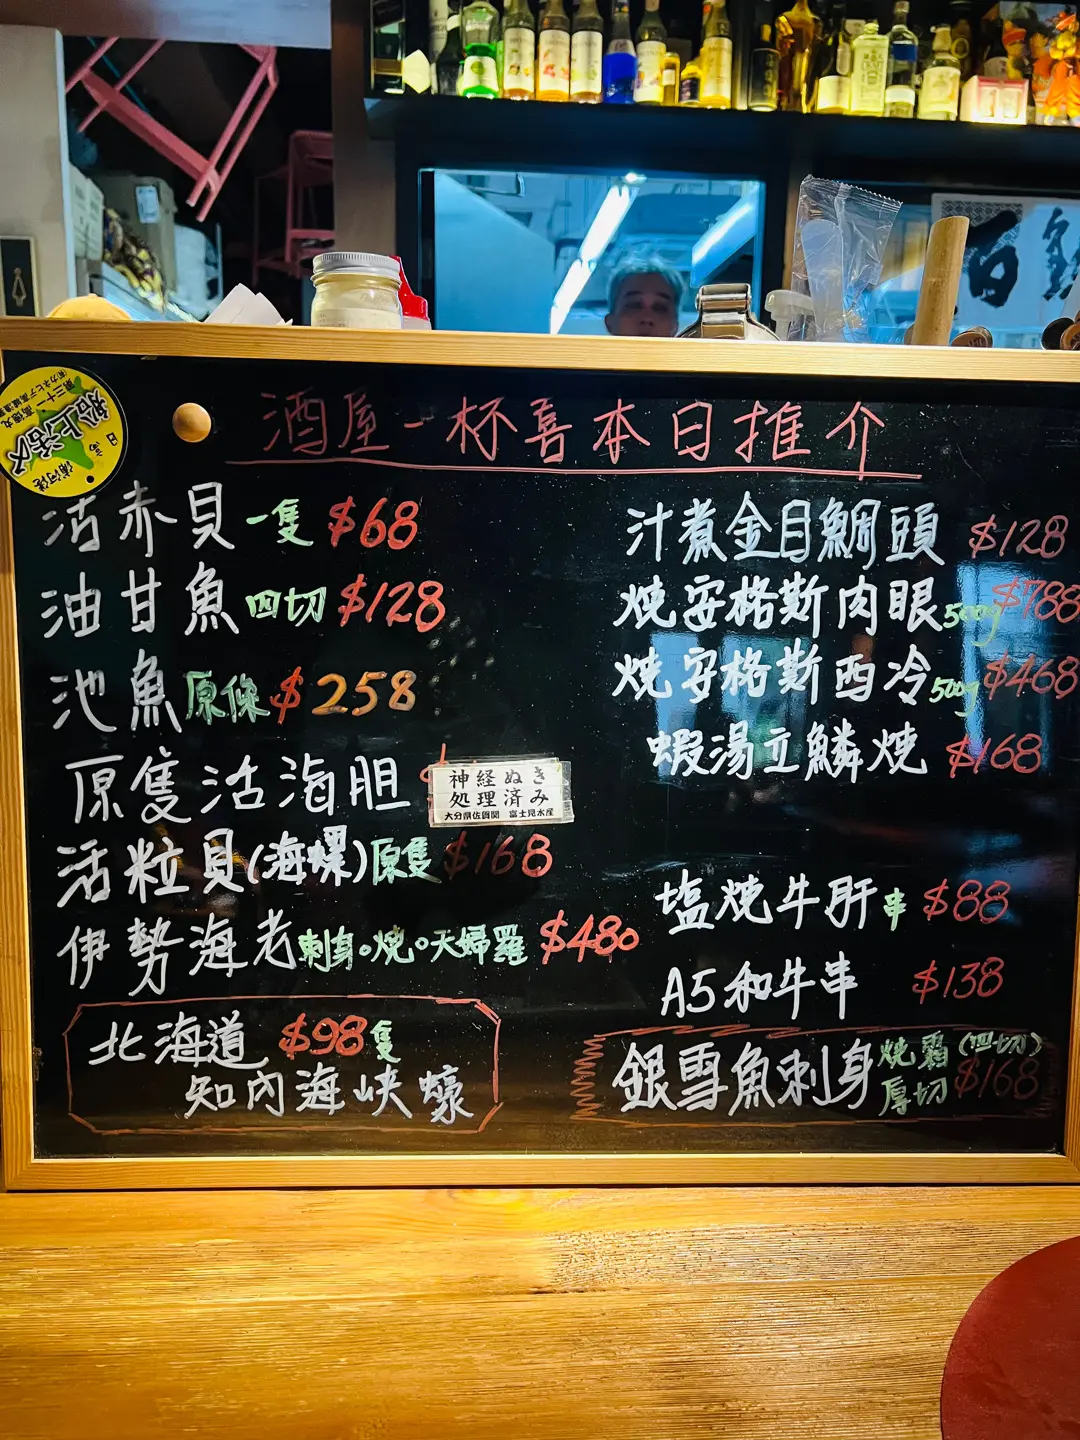 酒屋一杯喜本日推介
活赤貝一隻 $68
油甘魚四切 $128
池魚原條 $258
原隻活海胆
神経ぬき
処理済み
大分県佐賀関 富士見水産
活粒貝(海螺)原隻 $168
伊勢海老刺身。燒。天婦羅 $480
北海道 $98隻
知內海峽蠔
汁煮金目鯛頭 $128
燒安格斯肉眼500g $788
燒安格斯西冷500g $468
蝦湯立鱗燒 $168
塩燒牛肝串 $88
A5和牛串 $138
銀雪魚刺身燒霜(四切)
厚切 $168
船上活〆
第三十一
高徳丸